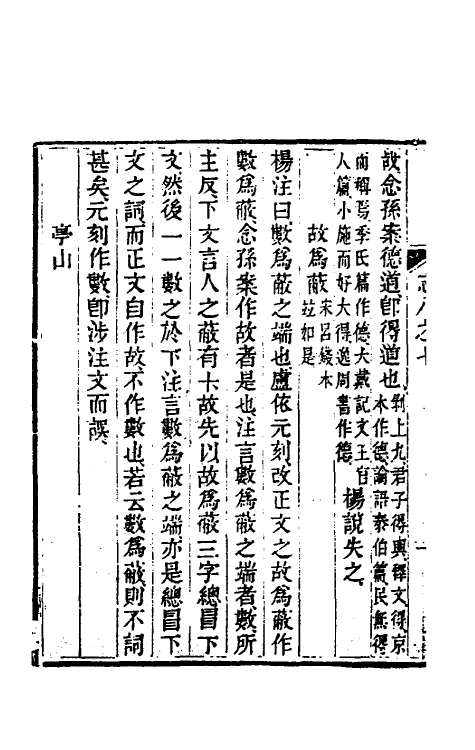 志八之七
故念孫案德道卽得道也剝上九君子得輿釋文得京本作德論語泰伯篇民無得
而稱焉季氏篇作德大戴記文王官人篇小施而好大得逸周書作德楊說失之
故爲蔽宋呂錢本竝如是
楊注曰數爲蔽之端也盧依元刻改正文之故爲蔽作
數爲蔽念孫案作故者是也注言數爲蔽之端者數所
主反下文言人之蔽有十故先以故爲蔽三字總冒下
文然後一一數之於下注言數爲蔽之端亦是總冒下
文之詞而正文自作故不作數也若云數爲蔽則不詞
甚矣元刻作數卽涉注文而誤
亭山